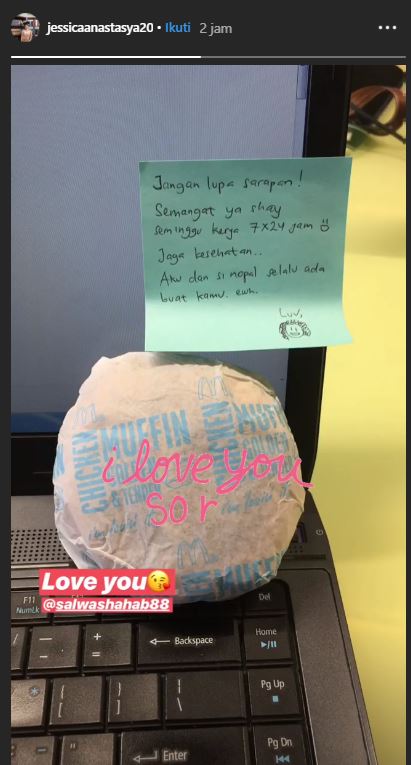 jessicaanastasya20 • Ikuti 2 jam
Jangan lupa sarapan!
Semangat ya shay
seminggu kerja 7x24 jam
Jaga kesehatan..
Aku dan si nopal selalu ada
buat kamu. ewh.
Luv,
CHICKEN
MUFFIN
GOLDEN
& TENDER
i'm lovin' it
CHICKEN
MUFFIN
GOLDEN
i'm lovin' it
MUFFIN
i love you
so r
Love you😘
@salwashahab88
F11
NumLk
Del
Backspace
Home
Pg Up
Enter
Pg Dn